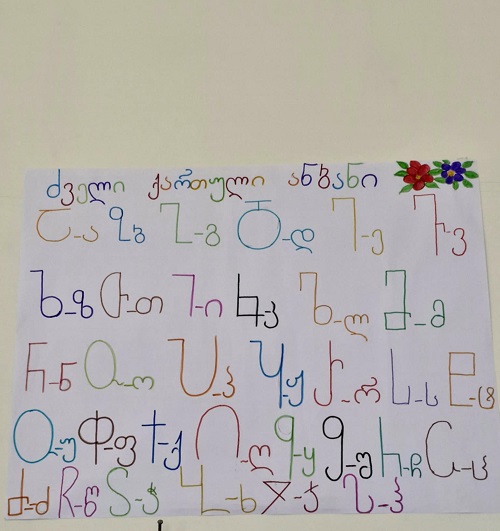 ძველი ქართული ანბანი
Ⴀ-ა Ⴁ ბ Ⴂ-გ Ⴃ-დ Ⴄ-ე Ⴅ ვ
Ⴆ-ზ Ⴇ-თ Ⴈ-ი Ⴉ-კ Ⴊ-ლ Ⴋ-მ
Ⴌ-ნ Ⴍ-ო Ⴎ-პ Ⴏ-ჟ Ⴐ-რ Ⴑ-ს Ⴒ-ტ
Ⴓ-უ Ⴔ-ფ Ⴕ-ქ Ⴖ-ღ Ⴗ-ყ Ⴘ-შ Ⴙ-ჩ Ⴚ-ც
Ⴛ-ძ Ⴜ-წ Ⴝ-ჭ Ⴞ-ხ Ⴟ-ჯ Ⴠ-ჰ